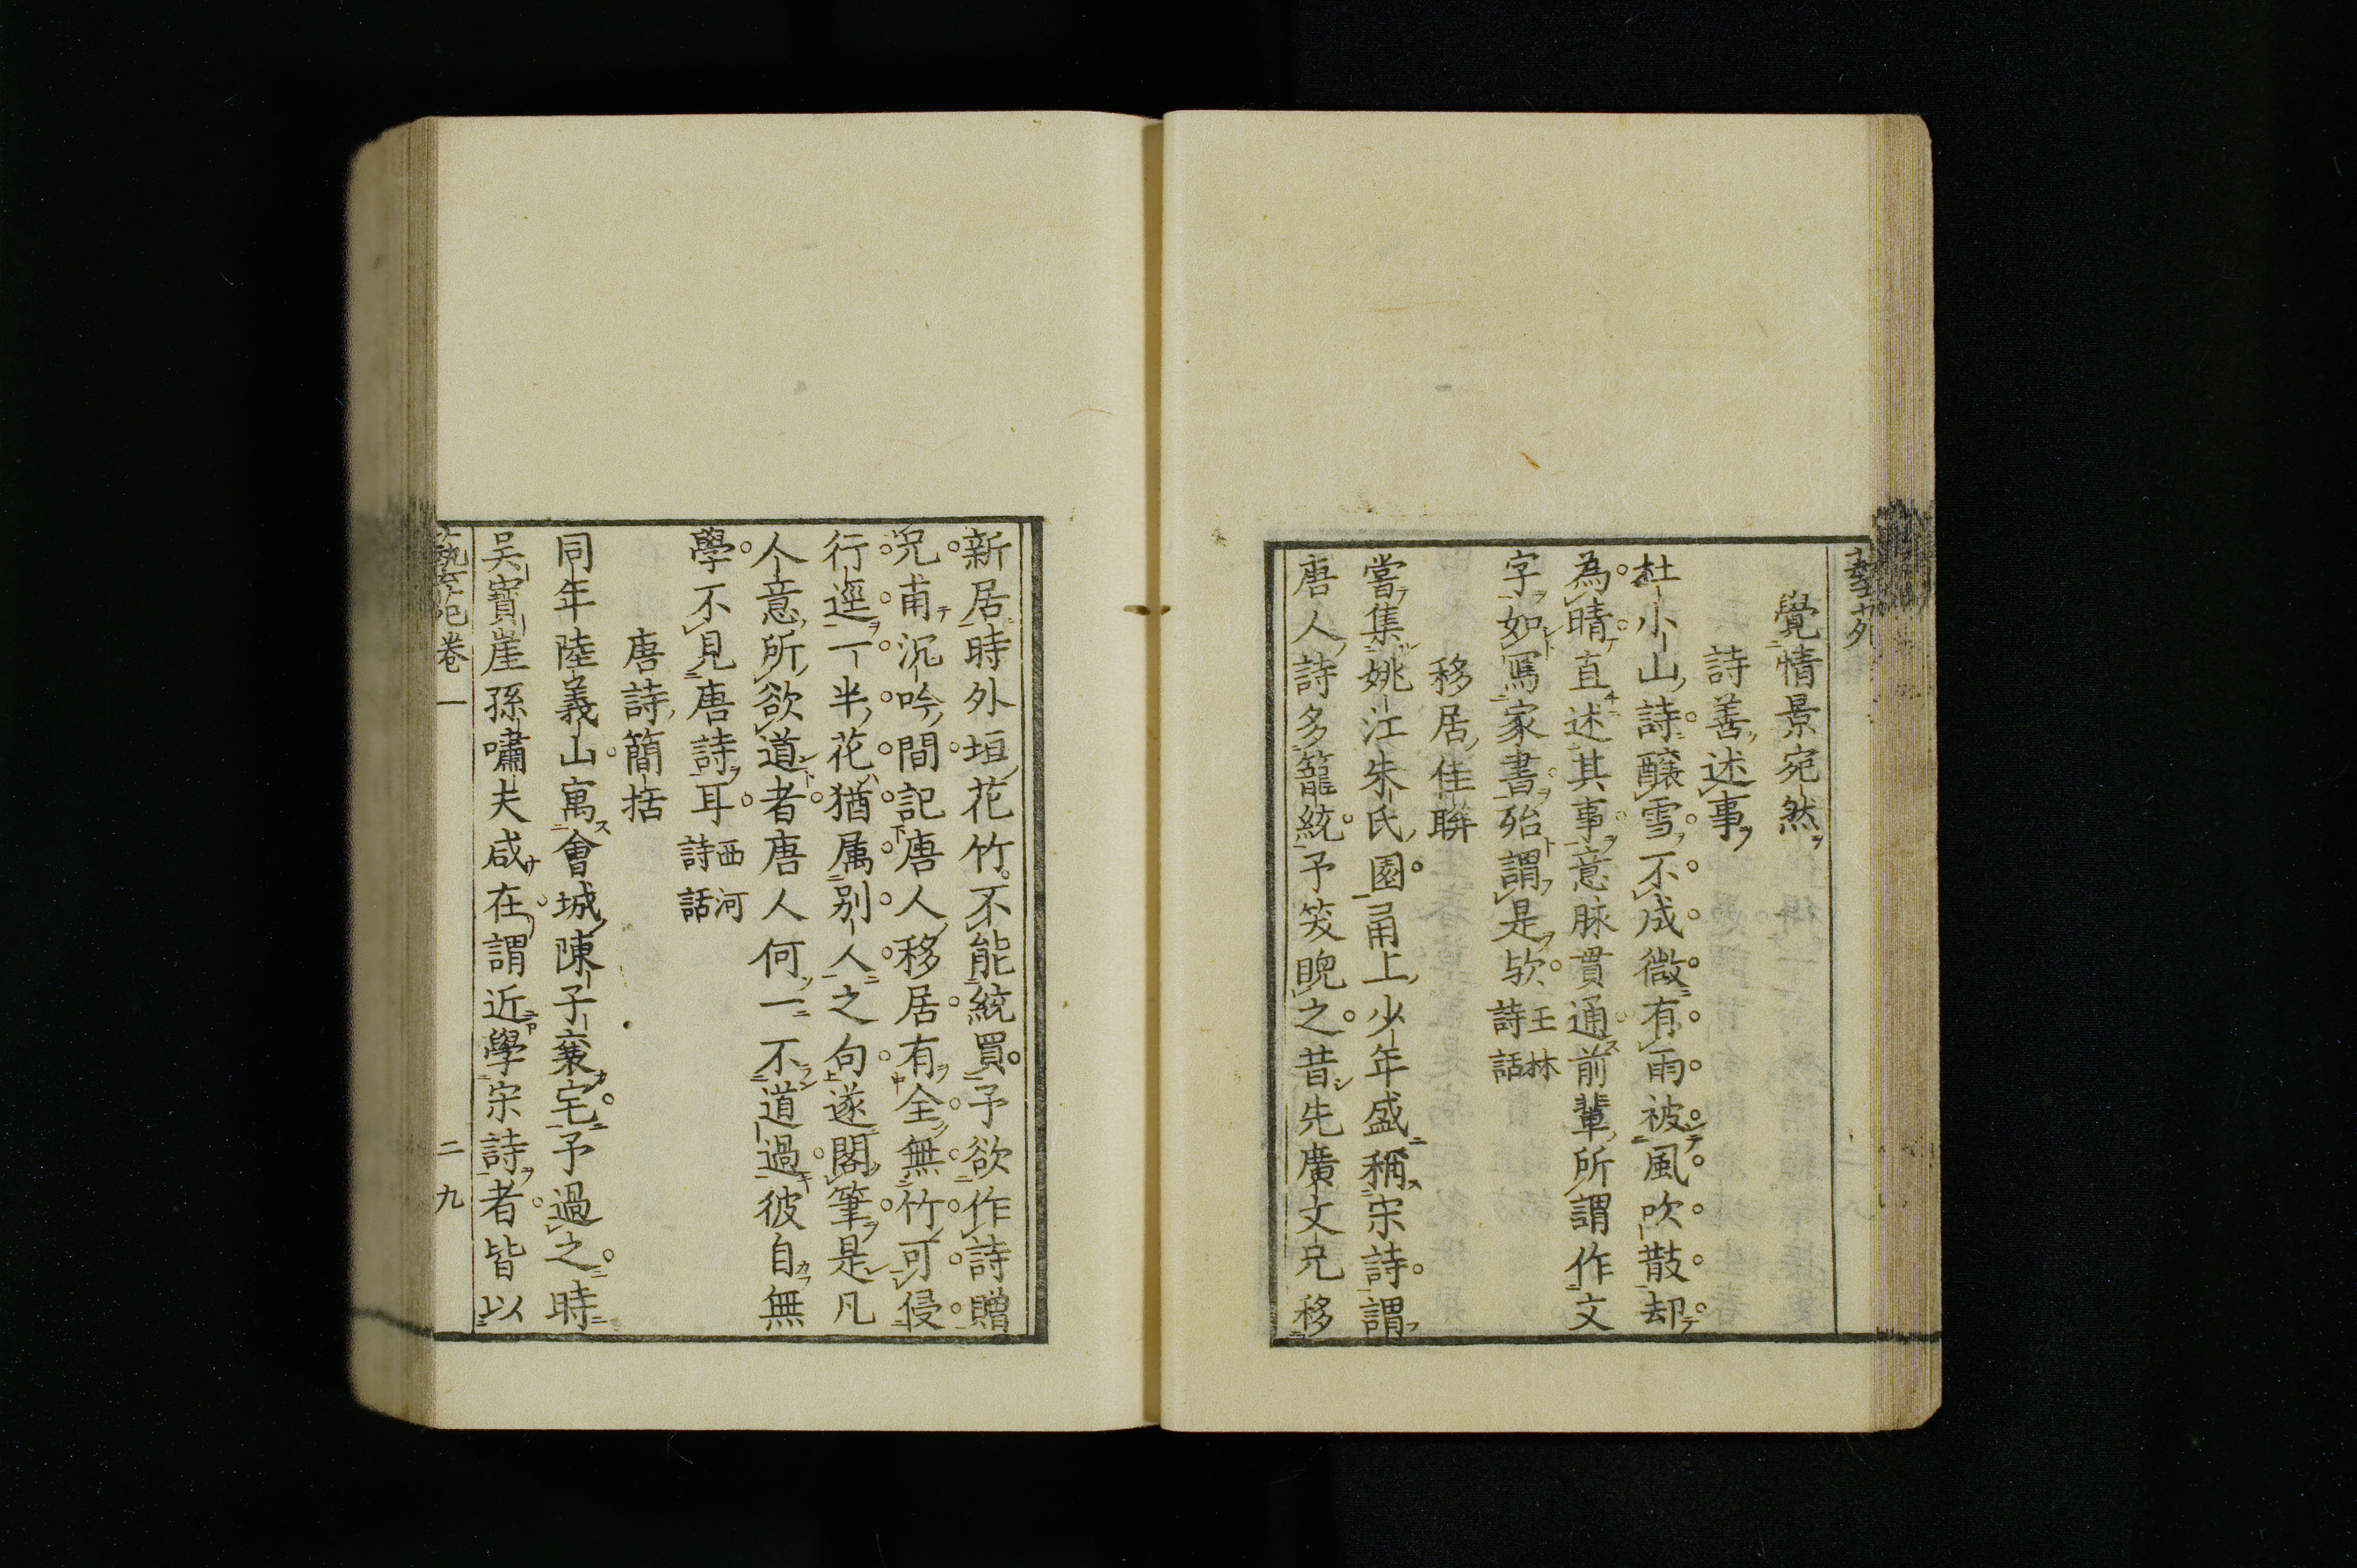 覺情景宛然
詩善述事
杜小山詩釀雪不成微有雨被風吹散却
為晴直述其事意脉貫通前輩所謂作文
字如寫家書殆謂是欤
王林
詩話
移居佳聯
嘗集姚江朱氏園甬上少年盛稱宋詩謂
唐人詩多籠統予笑睨之昔先廣文兄移
新居時外垣花竹不能統買予欲作詩贈
兄甫沉吟間記唐人移居有全無竹可侵
行逕一半花猶属别人之句遂閣筆是凡
人意所欲道者唐人何一不道過彼自無
學不見唐詩耳
西河
詩話
唐詩簡括
同年陸義山寓會城陳子襄宅予過之時
吴寶崖孫嘯夫咸在謂近學宋詩者皆以
卷一
二九